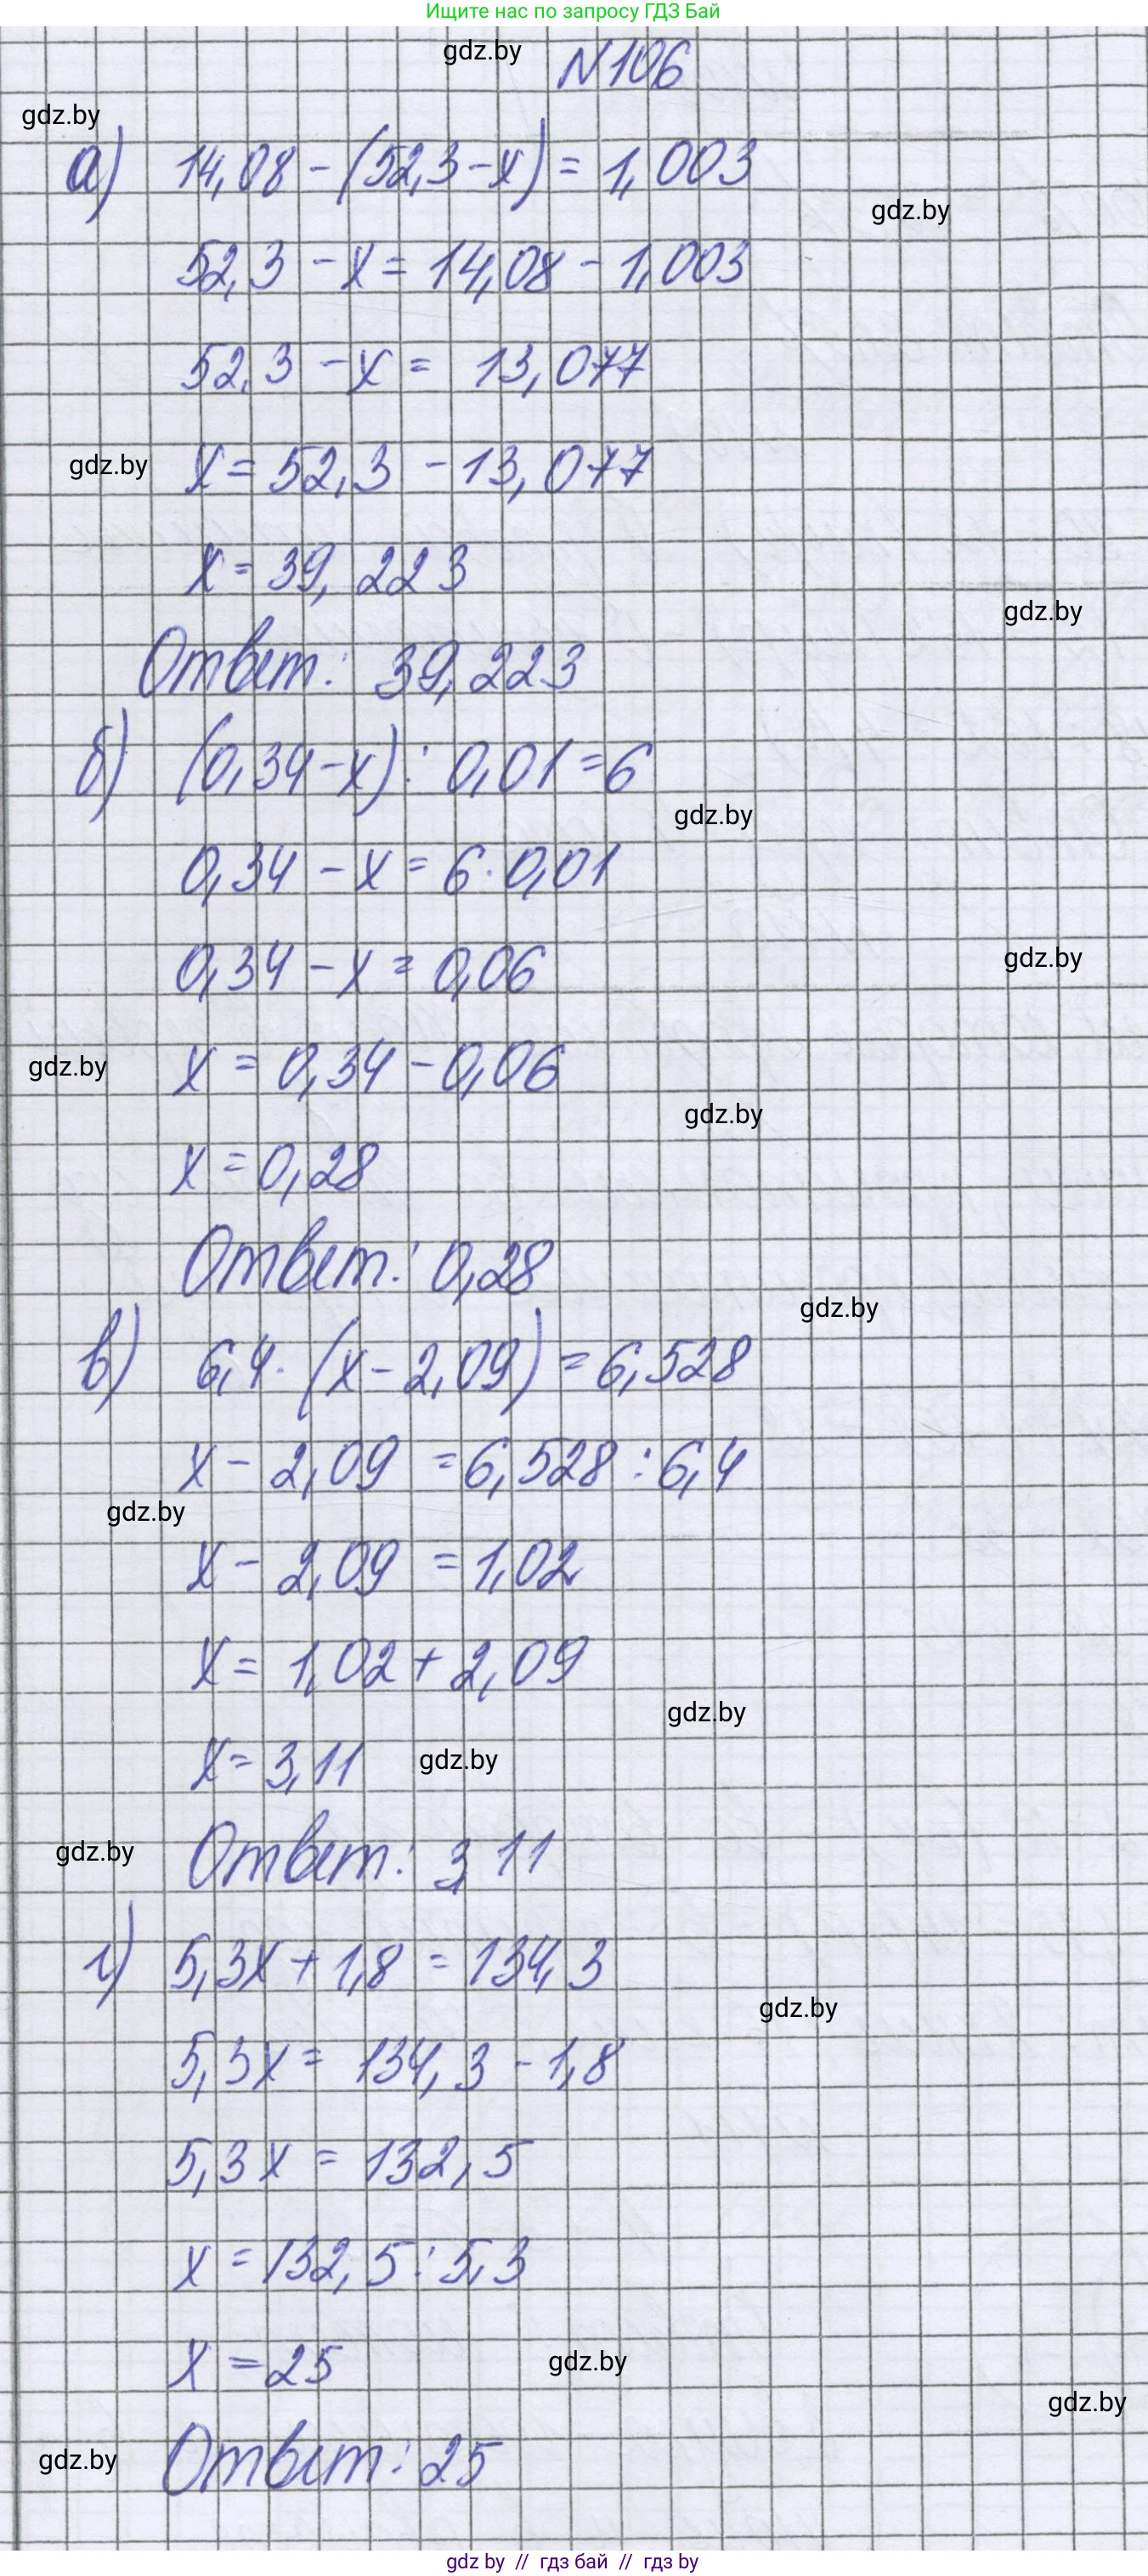 Ищите нас по запросу ГДЗ Бай
gdz.by
N106
gdz.by
а) 14,08 - (52,3 - x) = 1,003
gdz.by
52,3 - x = 14,08 - 1,003
52,3 - x = 13,077
gdz.by
x = 52,3 - 13,077
x = 39,223
gdz.by
Ответ: 39,223
б) (0,34 - x) : 0,01 = 6
gdz.by
0,34 - x = 6 · 0,01
gdz.by
0,34 - x = 0,06
gdz.by
x = 0,34 - 0,06
gdz.by
x = 0,28
Ответ: 0,28
gdz.by
в) 6,4 · (x - 2,09) = 6,528
x - 2,09 = 6,528 : 6,4
gdz.by
x - 2,09 = 1,02
x = 1,02 + 2,09
gdz.by
x = 3,11
gdz.by
gdz.by
Ответ: 3,11
г) 5,3x + 1,8 = 134,3
gdz.by
5,3x = 134,3 - 1,8
5,3x = 132,5
x = 132,5 : 5,3
x = 25
gdz.by
gdz.by
gdz.by
Ответ: 25
gdz by // гдз бай // гдз by